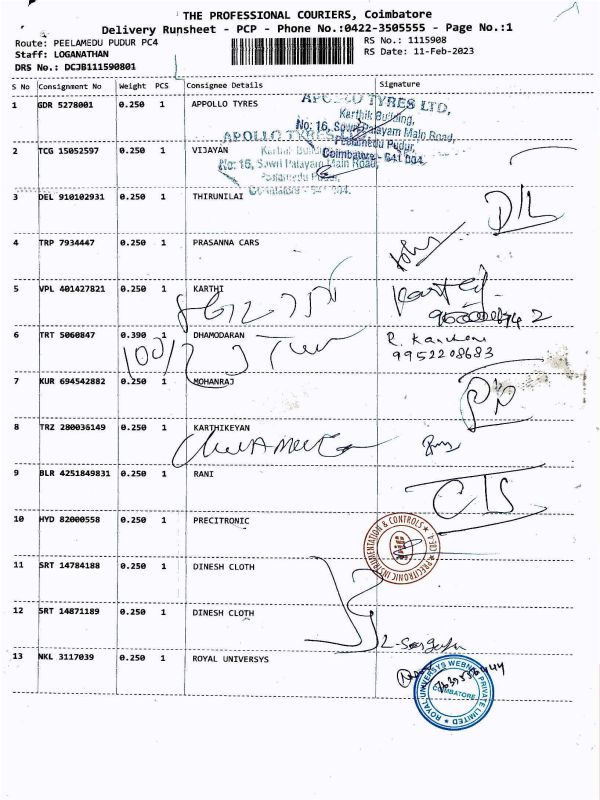 THE PROFESSIONAL COURIERS, Coimbatore
Delivery Runsheet - PCP - Phone No.:0422-3505555 - Page No.:1
Route: PEELAMEDU PUDUR PC4
RS No.: 1115908
Staff: LOGANATHAN
RS Date: 11-Feb-2023
DRS No.: DCJB111590801
S No Consignment No Weight PCS Consignee Details Signature
1 GDR 5278001 0.250 1 APPOLLO TYRES
APOLLO TYRES LTD,
Karthik Building,
No: 16, Sowri Palayam Main Road,
Peelamedu Pudur,
Coimbatore - 641 004.
2 TCG 15052597 0.250 1 VIJAYAN
APOLLO TYRES LTD,
Karthik Building,
No: 16, Sowri Palayam Main Road,
Peelamedu Pudur,
Coimbatore - 641 004.
3 DEL 910102931 0.250 1 THIRUNILAI
4 TRP 7934447 0.250 1 PRASANNA CARS
5 VPL 401427821 0.250 1 KARTHI
6 TRT 5060847 0.390 1 DHAMODARAN
9952208683
7 KUR 694542882 0.250 1 MOHANRAJ
8 TRZ 280036149 0.250 1 KARTHIKEYAN
9 BLR 4251849831 0.250 1 RANI
CTS
10 HYD 82000558 0.250 1 PRECITRONIC
PRECITRONIC INSTRUMENTATION & CONTROLS
CBE-4
11 SRT 14784188 0.250 1 DINESH CLOTH
12 SRT 14871189 0.250 1 DINESH CLOTH
13 NKL 3117039 0.250 1 ROYAL UNIVERSYS
ROYAL UNIVERSYS WEBNET PRIVATE LIMITED
COIMBATORE